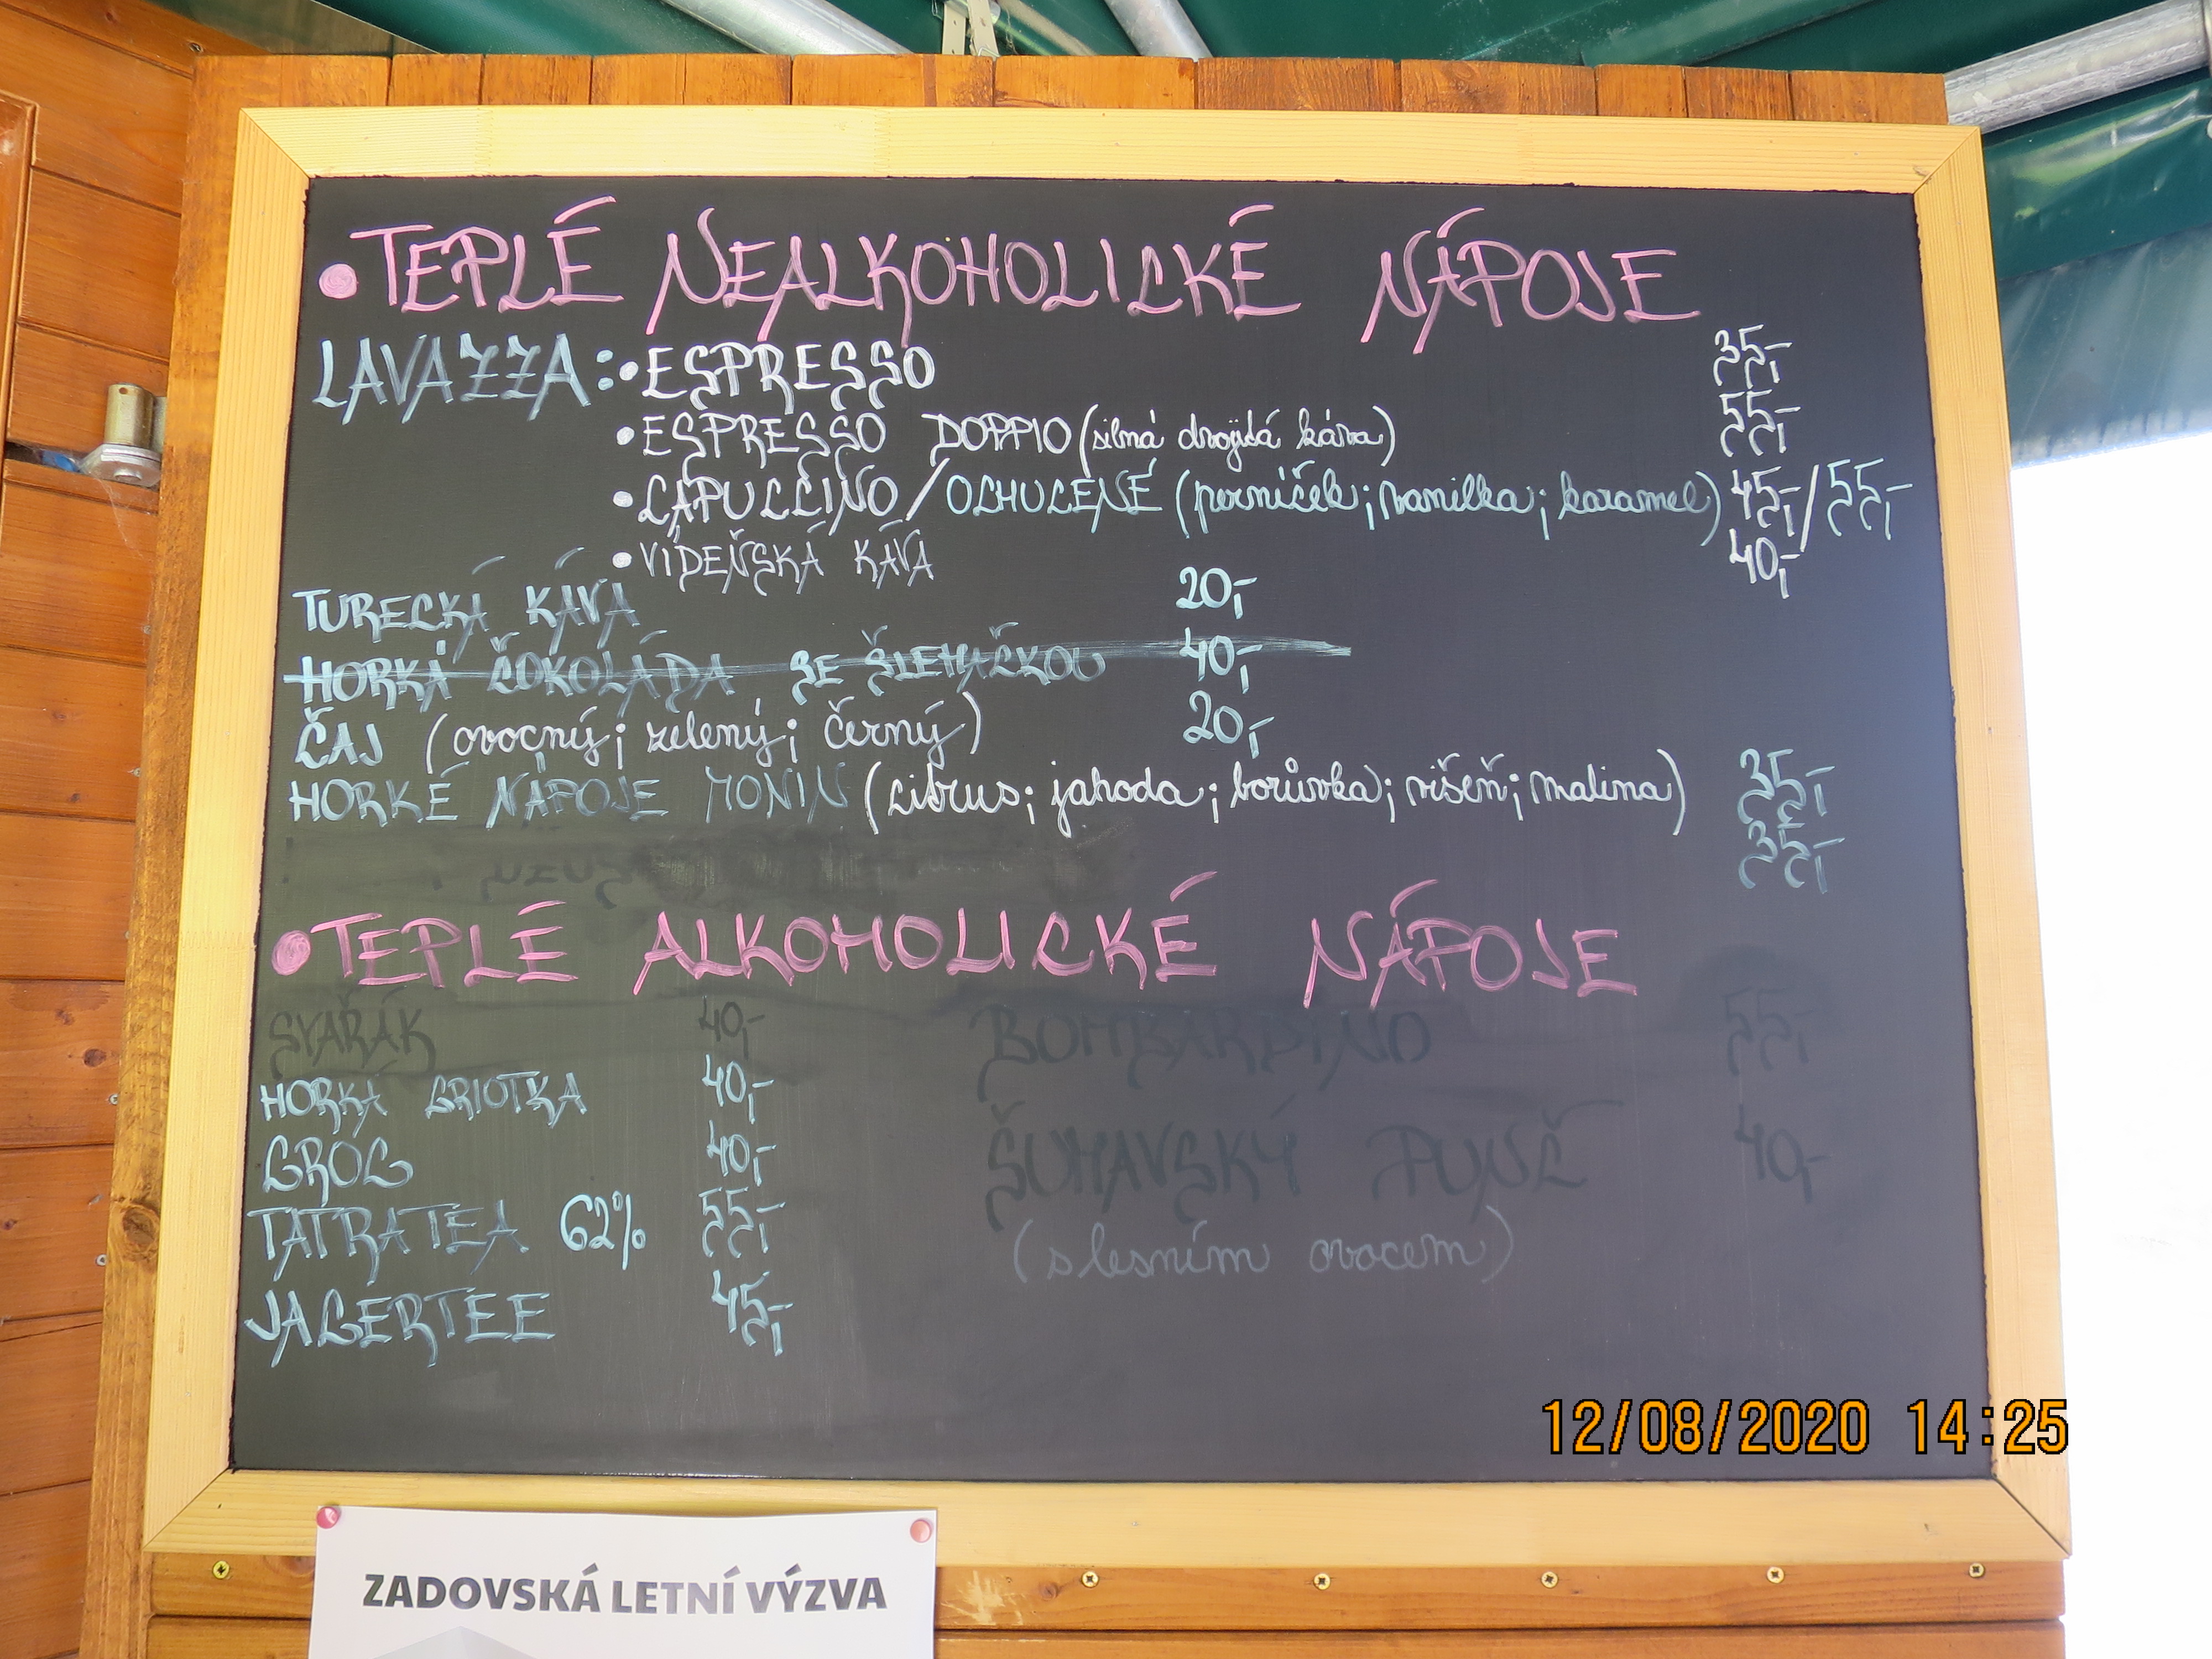 • TEPLÉ NEALKOHOLICKÉ NÁPOJE
LAVAZZA: • ESPRESSO 35,-
• ESPRESSO DOPPIO (silná dvojitá káva) 55,-
• CAPUCCINO / OCHUCENÉ (perníček; vanilka; karamel) 45,-/55,-
• VÍDEŇSKÁ KÁVA 40,-
TURECKÁ KÁVA 20,-
HORKÁ ČOKOLÁDA SE ŠLEHAČKOU 40,-
ČAJ (ovocný; zelený; černý) 20,-
HORKÉ NÁPOJE MONIN (citrus; jahoda; borůvka; višeň; malina) 35,-
35,-
• TEPLÉ ALKOHOLICKÉ NÁPOJE
SVAŘÁK 40,- BOMBARDINO 55,-
HORKÁ GRIOTKA 40,-
GROG 40,- ŠUMAVSKÝ PUNČ 40,-
TATRATEA 62% 55,- (s lesním ovocem)
JAGERTEE 45,-
12/08/2020 14:25
ZADOVSKÁ LETNÍ VÝZVA